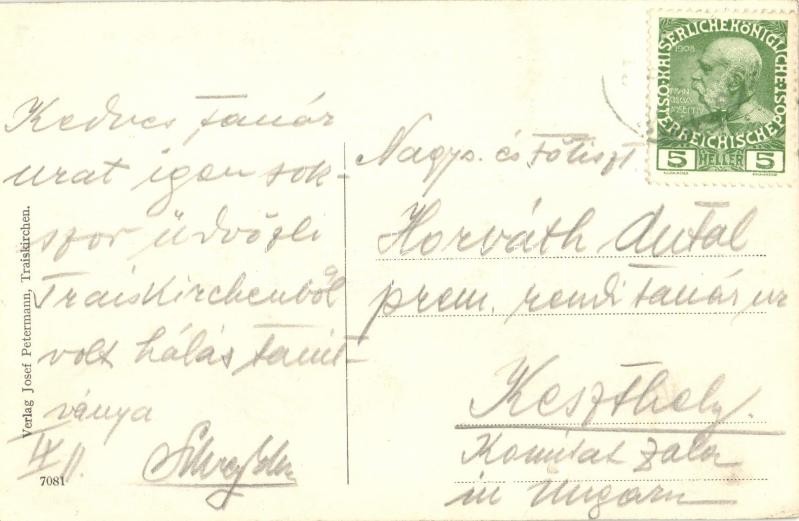 Kedves tanár
urat igen sok-
szor üdvözli
Traiskirchenből
volt hálás tanít-
ványa
IX
11.
Nagys. és főtiszt
Horváth Antal
prem. rendi tanár ur
Keszthely.
Komitat Zala
in Ungarn
KAISERLICHE KÖNIGLICHE ÖSTERREICHISCHE POST
1908
5 HELLER 5
Verlag Josef Petermann, Traiskirchen.
7081